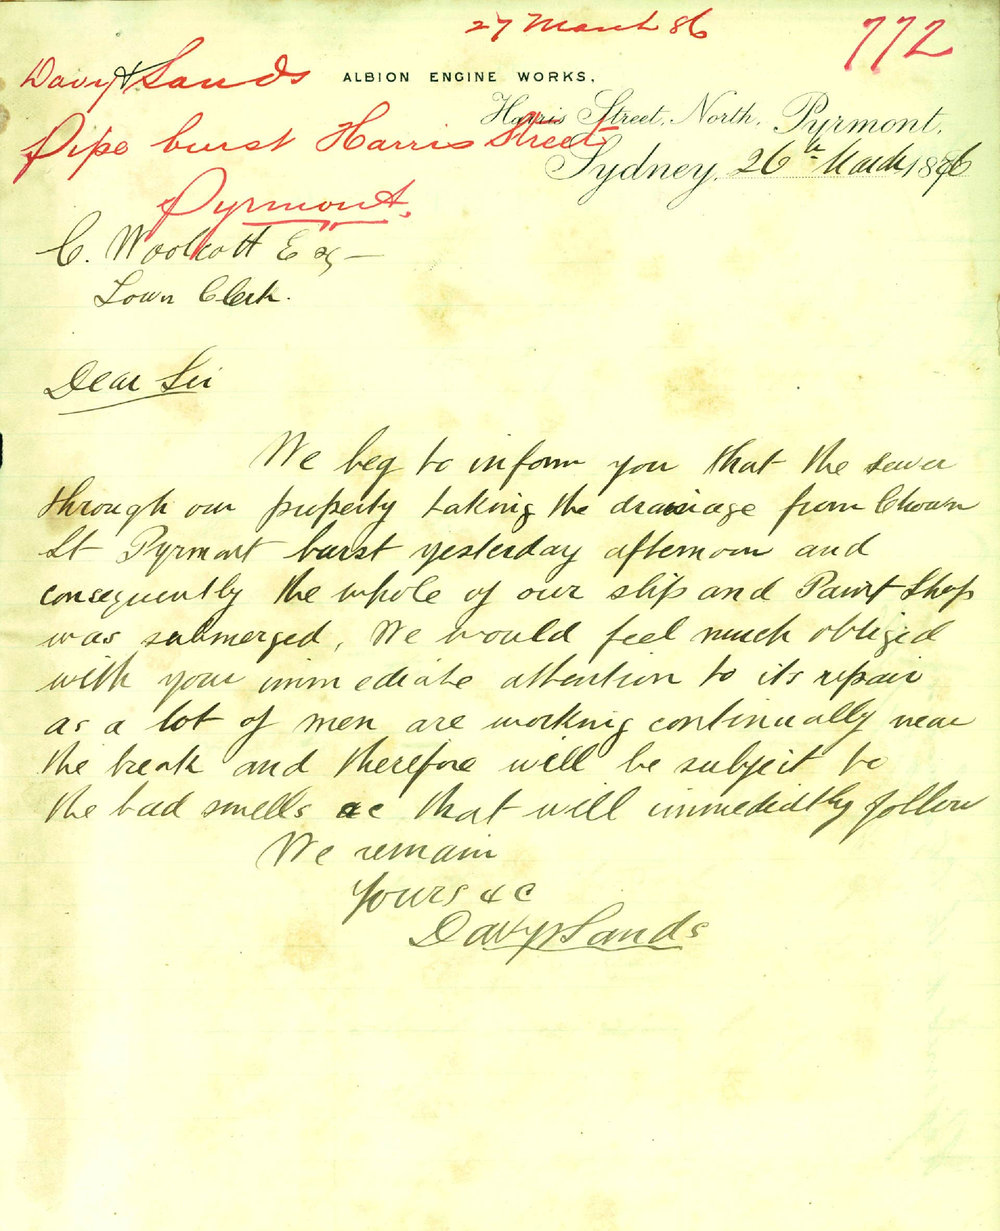 27 March 86
772
Davy & Sands
ALBION ENGINE WORKS.
Harris Street, North, Pyrmont,
Pipe burst Harris Street
Pyrmont.
Sydney, 26th March 1886
C. Woolcott Esq —
Town Clerk.
Dear Sir
We beg to inform you that the sewer
through our property taking the drainage from Chown
St Pyrmont burst yesterday afternoon and
consequently the whole of our slip and Paint Shop
was submerged, We would feel much obliged
with your immediate attention to its repair
as a lot of men are working continually near
the break and therefore will be subject to
the bad smells &c that will immediatly follow
We remain
Yours &c
Davy & Sands